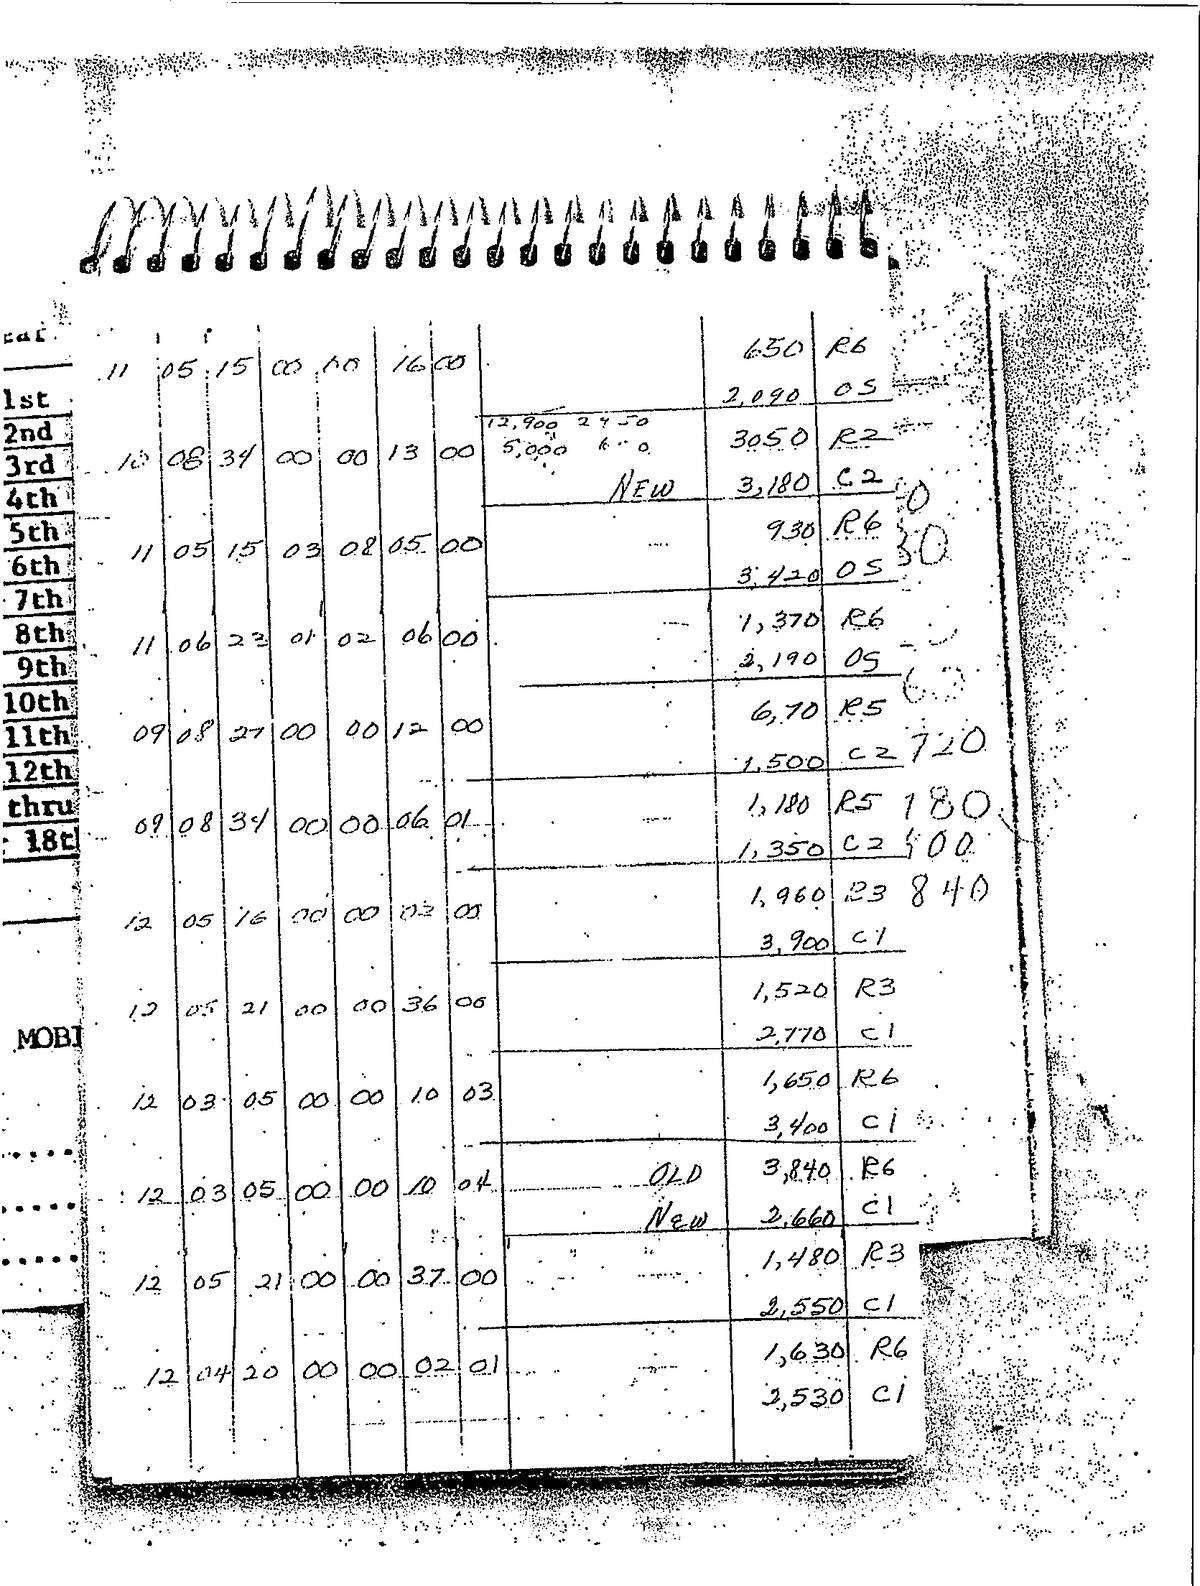 650 R6
11 05 15 00 00 16 00
2,090 OS
12,900 2450
5,000
3050 R2
10 08 34 00 00 13 00
NEW 3,180 C2
930 R6
11 05 15 03 08 05 00
3,420 OS
1,370 R6
11 06 23 01 02 06 00
2,190 OS
6,70 R5
09 08 27 00 00 12 00
1,500 C2 720
1,180 R5 180
09 08 34 00 00 06 01
1,350 C2 00
1,960 R3 840
12 05 16 00 00 03 00
3,900 C1
1,520 R3
12 05 21 00 00 36 00
2,770 C1
1,650 R6
12 03 05 00 00 10 03
3,400 C1
OLD 3,840 R6
12 03 05 00 00 10 04
NEW 2,660 C1
1,480 R3
12 05 21 00 00 37 00
2,550 C1
1,630 R6
12 04 20 00 00 02 01
2,530 C1
1st
2nd
3rd
4th
5th
6th
7th
8th
9th
10th
11th
12th
thru
18t
MOBI